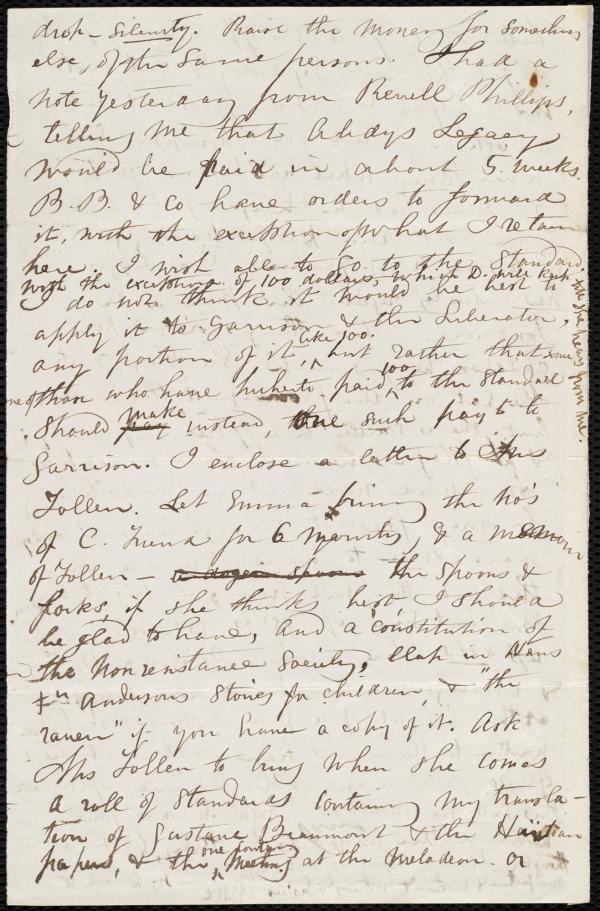 drop – silently. Raise the money for something
else, of the same persons. I had a
note yesterday from Revell Phillips,
telling me that Abdys Legacy
would be paid in about 5. weeks.
B. B. & Co have orders to forward
it, with the exception of what I retain
here. I wish able to go to the Standard.
with the exception of 100 dollars, which D. will keep
till she hears from me.
do not think it would be best to
apply it to Garrison & the Liberator,
any portion of it, like 100. but rather that some
one of those who have hitherto paid 100 to the Standard
should pay make instead, one such pay to
Garrison. I enclose a letter to Mrs
Follen. Let Emma bring the No's
of C. Friend for 6 months, & a memoir
of Follen – a dozen spoons the spoons &
forks, if she thinks best, I should
be glad to have, and a constitution of
the Nonresistance Society, Hans
Andersons Stories for children, & "the
raven" if you have a copy of it. Ask
Mrs Follen to bring when she comes
a roll of Standards containing my transla-
tion of Gustave Beaumont & the Haitian
papers, & the one containing meeting at the Melodeon. or